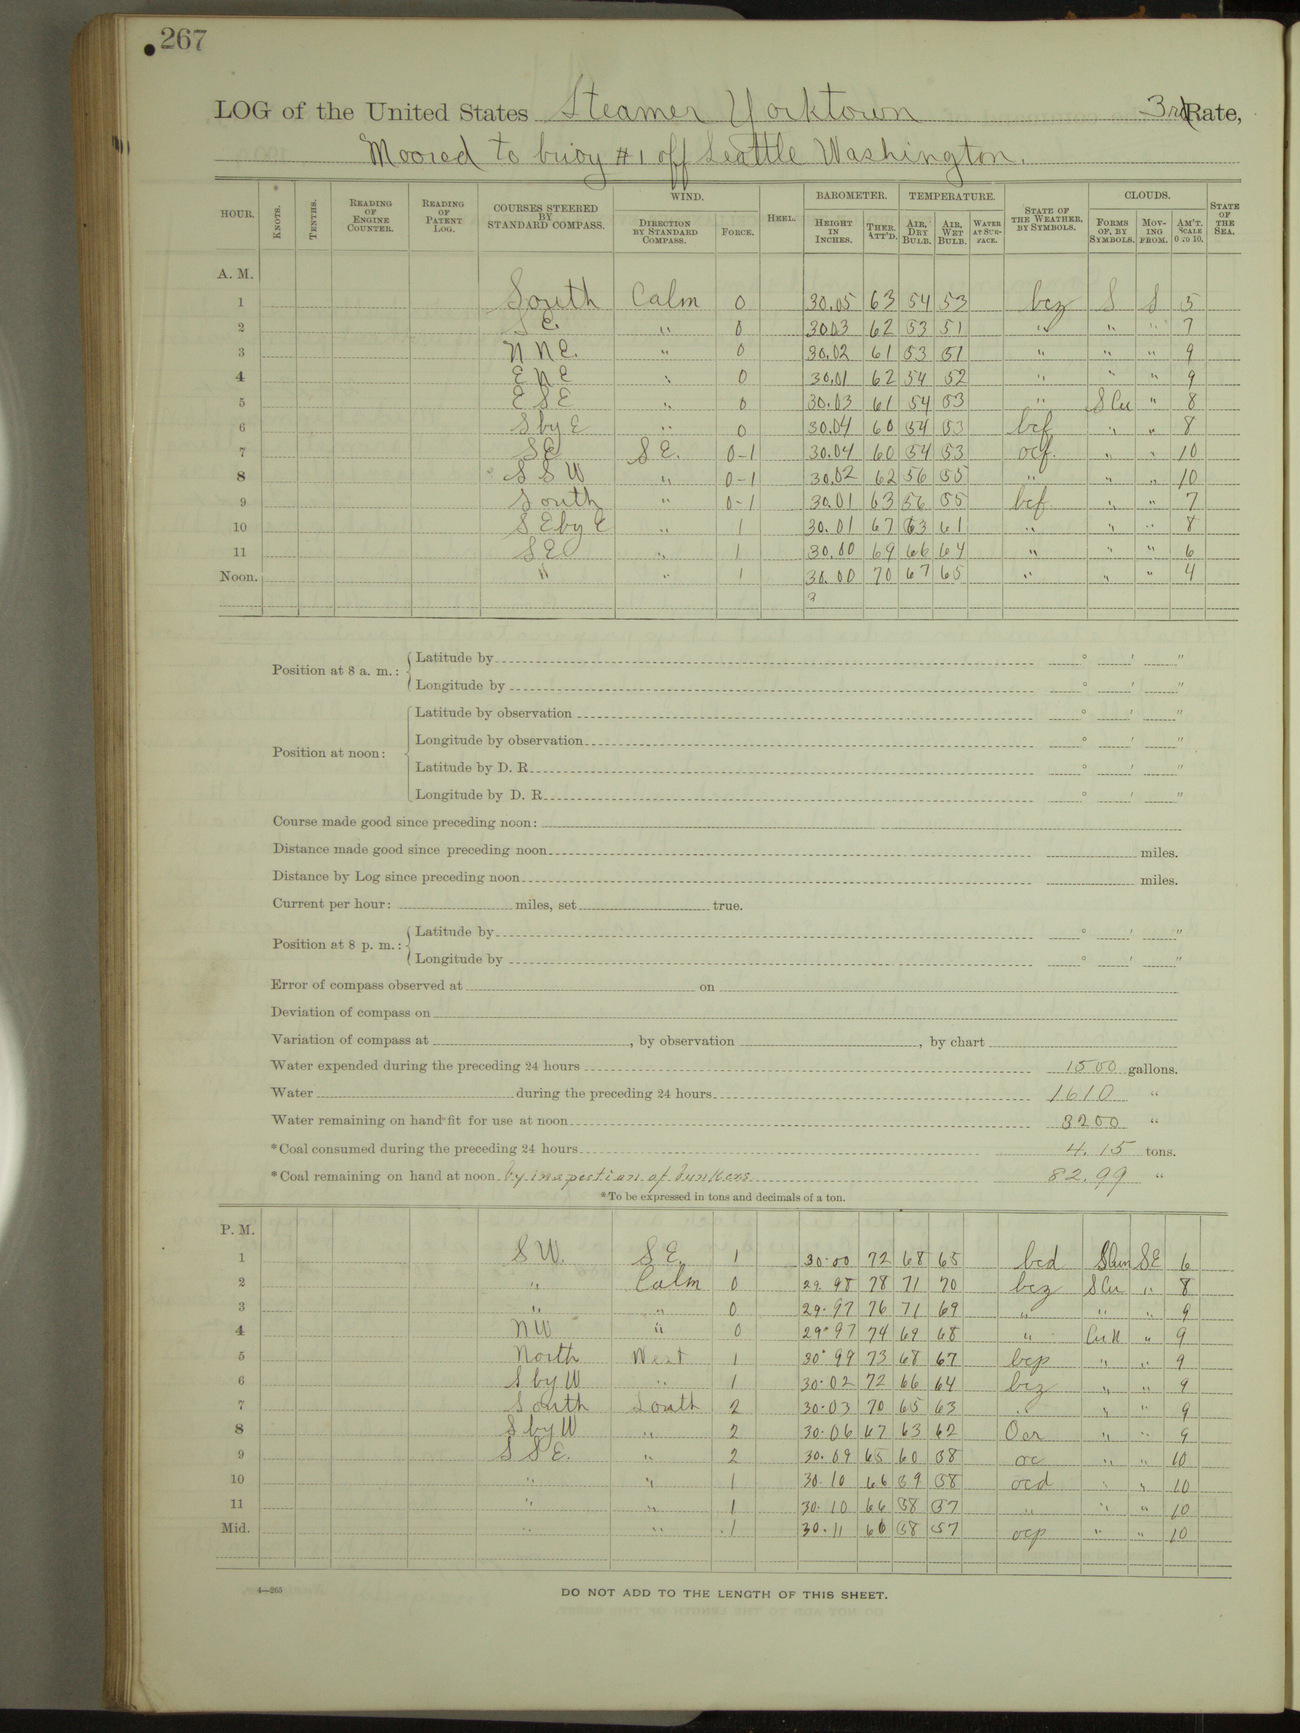 267
LOG of the United States Steamer Yorktown 3rd Rate,
Moored to buoy #1 off Seattle Washington.
HOUR. KNOTS. TENTHS. READING OF ENGINE COUNTER. READING OF PATENT LOG. COURSES STEERED BY STANDARD COMPASS. WIND. DIRECTION BY STANDARD COMPASS. FORCE. HEEL. BAROMETER. HEIGHT IN INCHES. THER. ATT'D. TEMPERATURE. AIR, DRY BULB. AIR, WET BULB. WATER AT SURFACE. STATE OF THE WEATHER, BY SYMBOLS. CLOUDS. FORMS OF, BY SYMBOLS. MOVING FROM. AM'T. SCALE 0 TO 10. STATE OF THE SEA.
A. M.
1 South Calm 0 30.05 63 54 53 bcz S S 5
2 S E. " 0 30.03 62 53 51 " " " 7
3 N N E. " 0 30.02 61 53 51 " " " 9
4 E N E " 0 30.01 62 54 52 " " " 9
5 E S E " 0 30.03 61 54 53 " S Cu " 8
6 S by E " 0 30.04 60 54 53 bcf " " 8
7 S E S E. 0-1 30.04 60 54 53 ocf. " " 10
8 S S W " 0-1 30.02 62 56 55 " " " 10
9 South " 0-1 30.01 63 56 55 bcf " " 7
10 S E by E " 1 30.01 67 63 61 " " " 8
11 S E " 1 30.00 69 66 64 " " " 6
Noon. " " 1 30.00 70 67 65 " " " 4
Position at 8 a. m.: Latitude by ° ′ ″
Longitude by ° ′ ″
Position at noon: Latitude by observation ° ′ ″
Longitude by observation ° ′ ″
Latitude by D. R. ° ′ ″
Longitude by D. R. ° ′ ″
Course made good since preceding noon:
Distance made good since preceding noon miles.
Distance by Log since preceding noon miles.
Current per hour: miles, set true.
Position at 8 p. m.: Latitude by ° ′ ″
Longitude by ° ′ ″
Error of compass observed at on
Deviation of compass on
Variation of compass at , by observation , by chart
Water expended during the preceding 24 hours 1500 gallons.
Water during the preceding 24 hours 1610 "
Water remaining on hand fit for use at noon 3200 "
*Coal consumed during the preceding 24 hours 4.15 tons.
*Coal remaining on hand at noon by inspection of bunkers 82.99 "
*To be expressed in tons and decimals of a ton.
P. M.
1 S W. S E. 1 30.00 72 68 65 bcd S Cum S E 6
2 " Calm 0 29.98 78 71 70 bcz S Cu " 8
3 " " 0 29.97 76 71 69 " " " 9
4 N W " 0 29.97 74 69 68 " Cu N " 9
5 North West 1 30.99 73 68 67 bcp " " 9
6 S by W " 1 30.02 72 66 64 bcz " " 9
7 South South 2 30.03 70 65 63 " " " 9
8 S by W " 2 30.06 67 63 62 Ocr " " 9
9 S S E. " 2 30.09 65 60 58 oc " " 10
10 " " 1 30.10 66 59 58 ocd " " 10
11 " " 1 30.10 66 58 57 " " " 10
Mid. " " 1 30.11 66 58 57 ocp " " 10
4—265
DO NOT ADD TO THE LENGTH OF THIS SHEET.